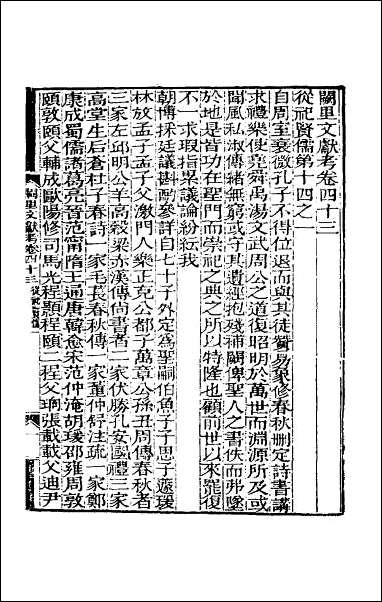 闕里文獻考卷四十三
從祀賢儒第十四之一
自周室衰微孔子不得位退而與其徒贊易象修春秋刪定詩書講
求禮樂使堯舜禹湯文武周公之道復昭明於萬世而淵源所及或
聞風私淑傳緒無窮或守其遺經抱殘補闕俾聖人之書佚而弗墜
於地是皆功在聖門而崇祀之典之所以特隆也顧前世以來罷復
不一求瑕指纇議論紛紜我
朝博採廷議斟酌參詳自七十子外定爲聖嗣伯魚子子思子蘧瑗
林放孟子孟子父激門人樂正克公都子萬章公孫丑周傳春秋者
三家左邱明公羊高穀梁赤漢傳尚書者二家伏勝孔安國禮三家
高堂生后蒼杜子春詩一家毛萇春秋傳一家董仲舒注疏一家鄭
康成蜀儒諸葛亮晉范甯隋王通唐韓愈宋范仲淹胡瑗邵雍周敦
頤敦頤父輔成歐陽修司馬光程顥程頤二程父珦張載載父迪尹
闕里文獻考 卷四十三 從祀賢儒 一